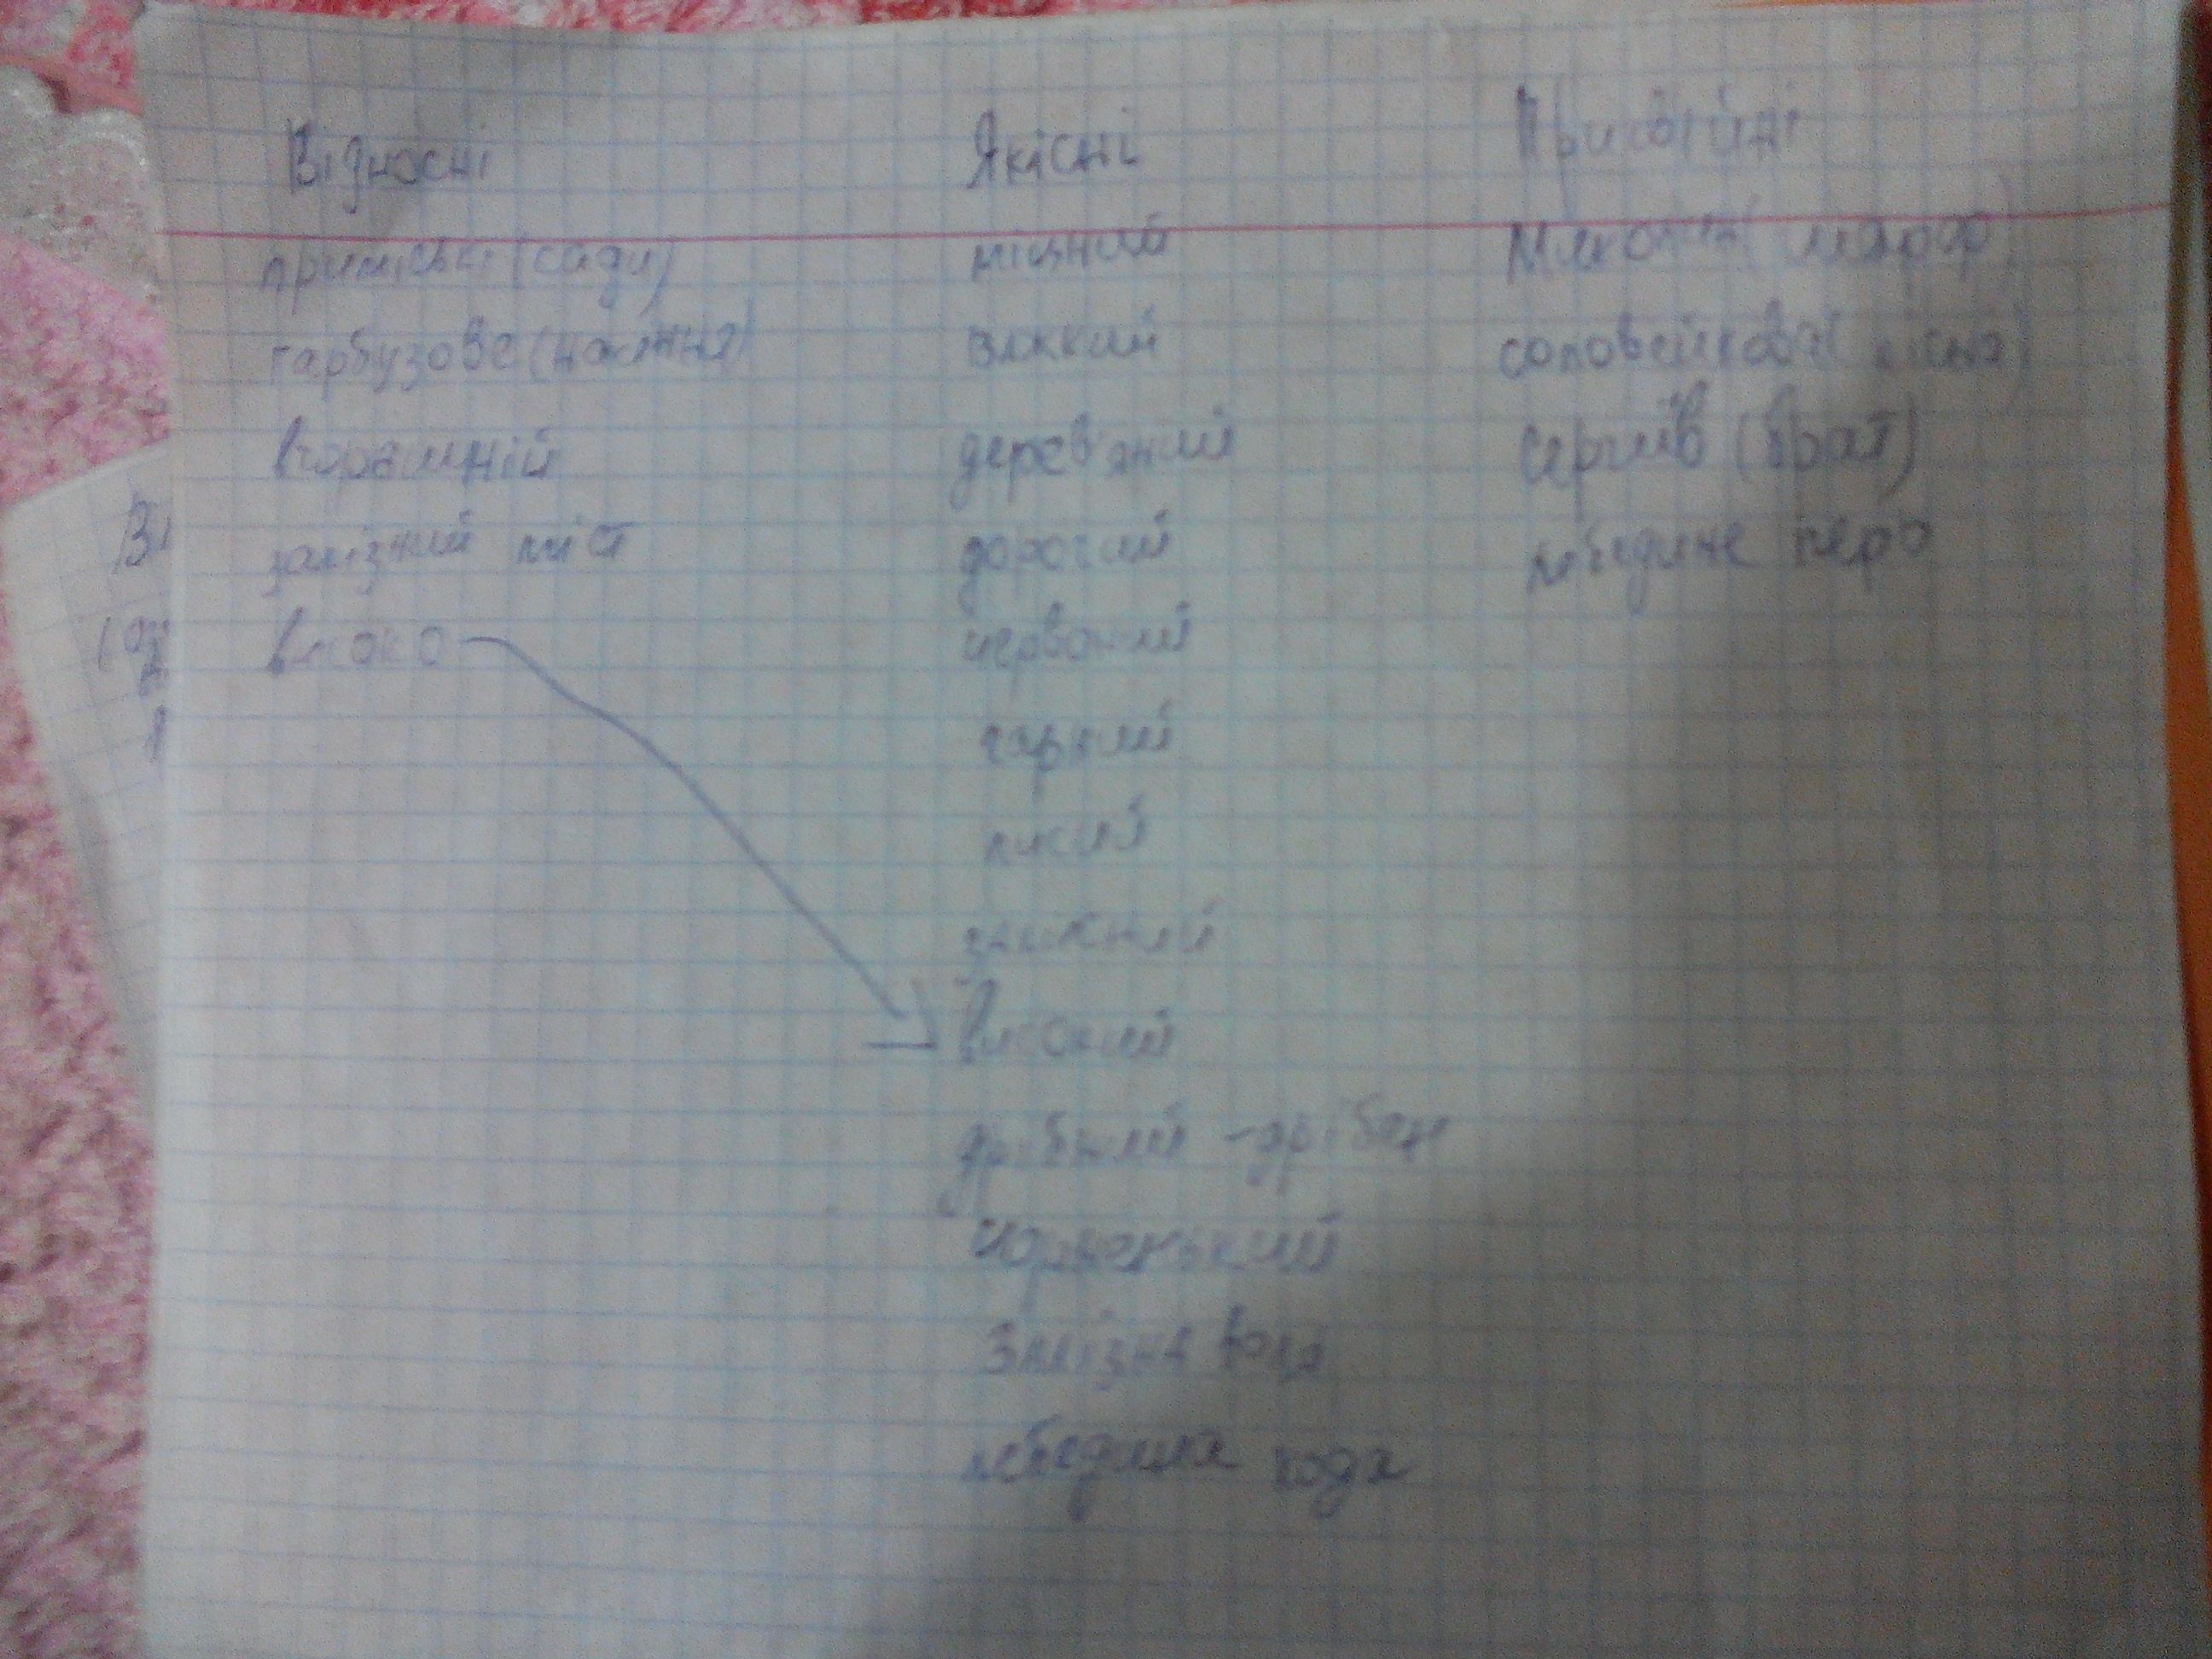 Відносні Якісні Присвійні
приміські (сади) міцний Миколин( шарф)
гарбузове (насіння) важкий соловейкова( пісня)
вчорашній дерев'яний Сергіїв (брат)
залізний міст дорогий лебедине перо
високо червоний
гарний
високий
дрібний - дрібен
чорненький
Залізна воля
лебедина хода